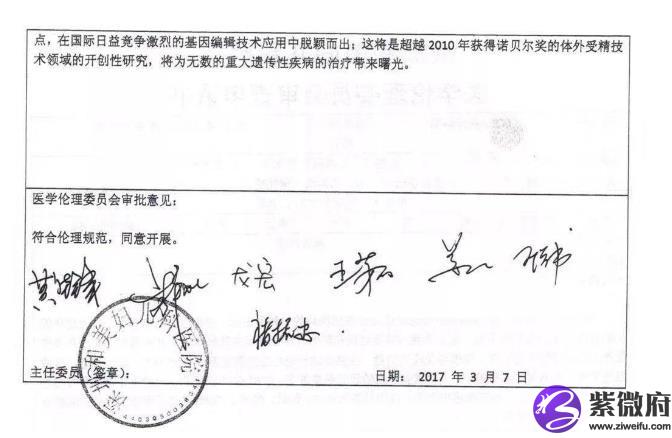 点，在国际日益竞争激烈的基因编辑技术应用中脱颖而出；这将是超越 2010 年获得诺贝尔奖的体外受精技
术领域的开创性研究，将为无数的重大遗传性疾病的治疗带来曙光。
医学伦理委员会审批意见：
符合伦理规范，同意开展。
深圳和美妇儿科医院
主任委员（签章）：
日期：2017 年 3 月 7 日
紫微府
www.ziweifu.com